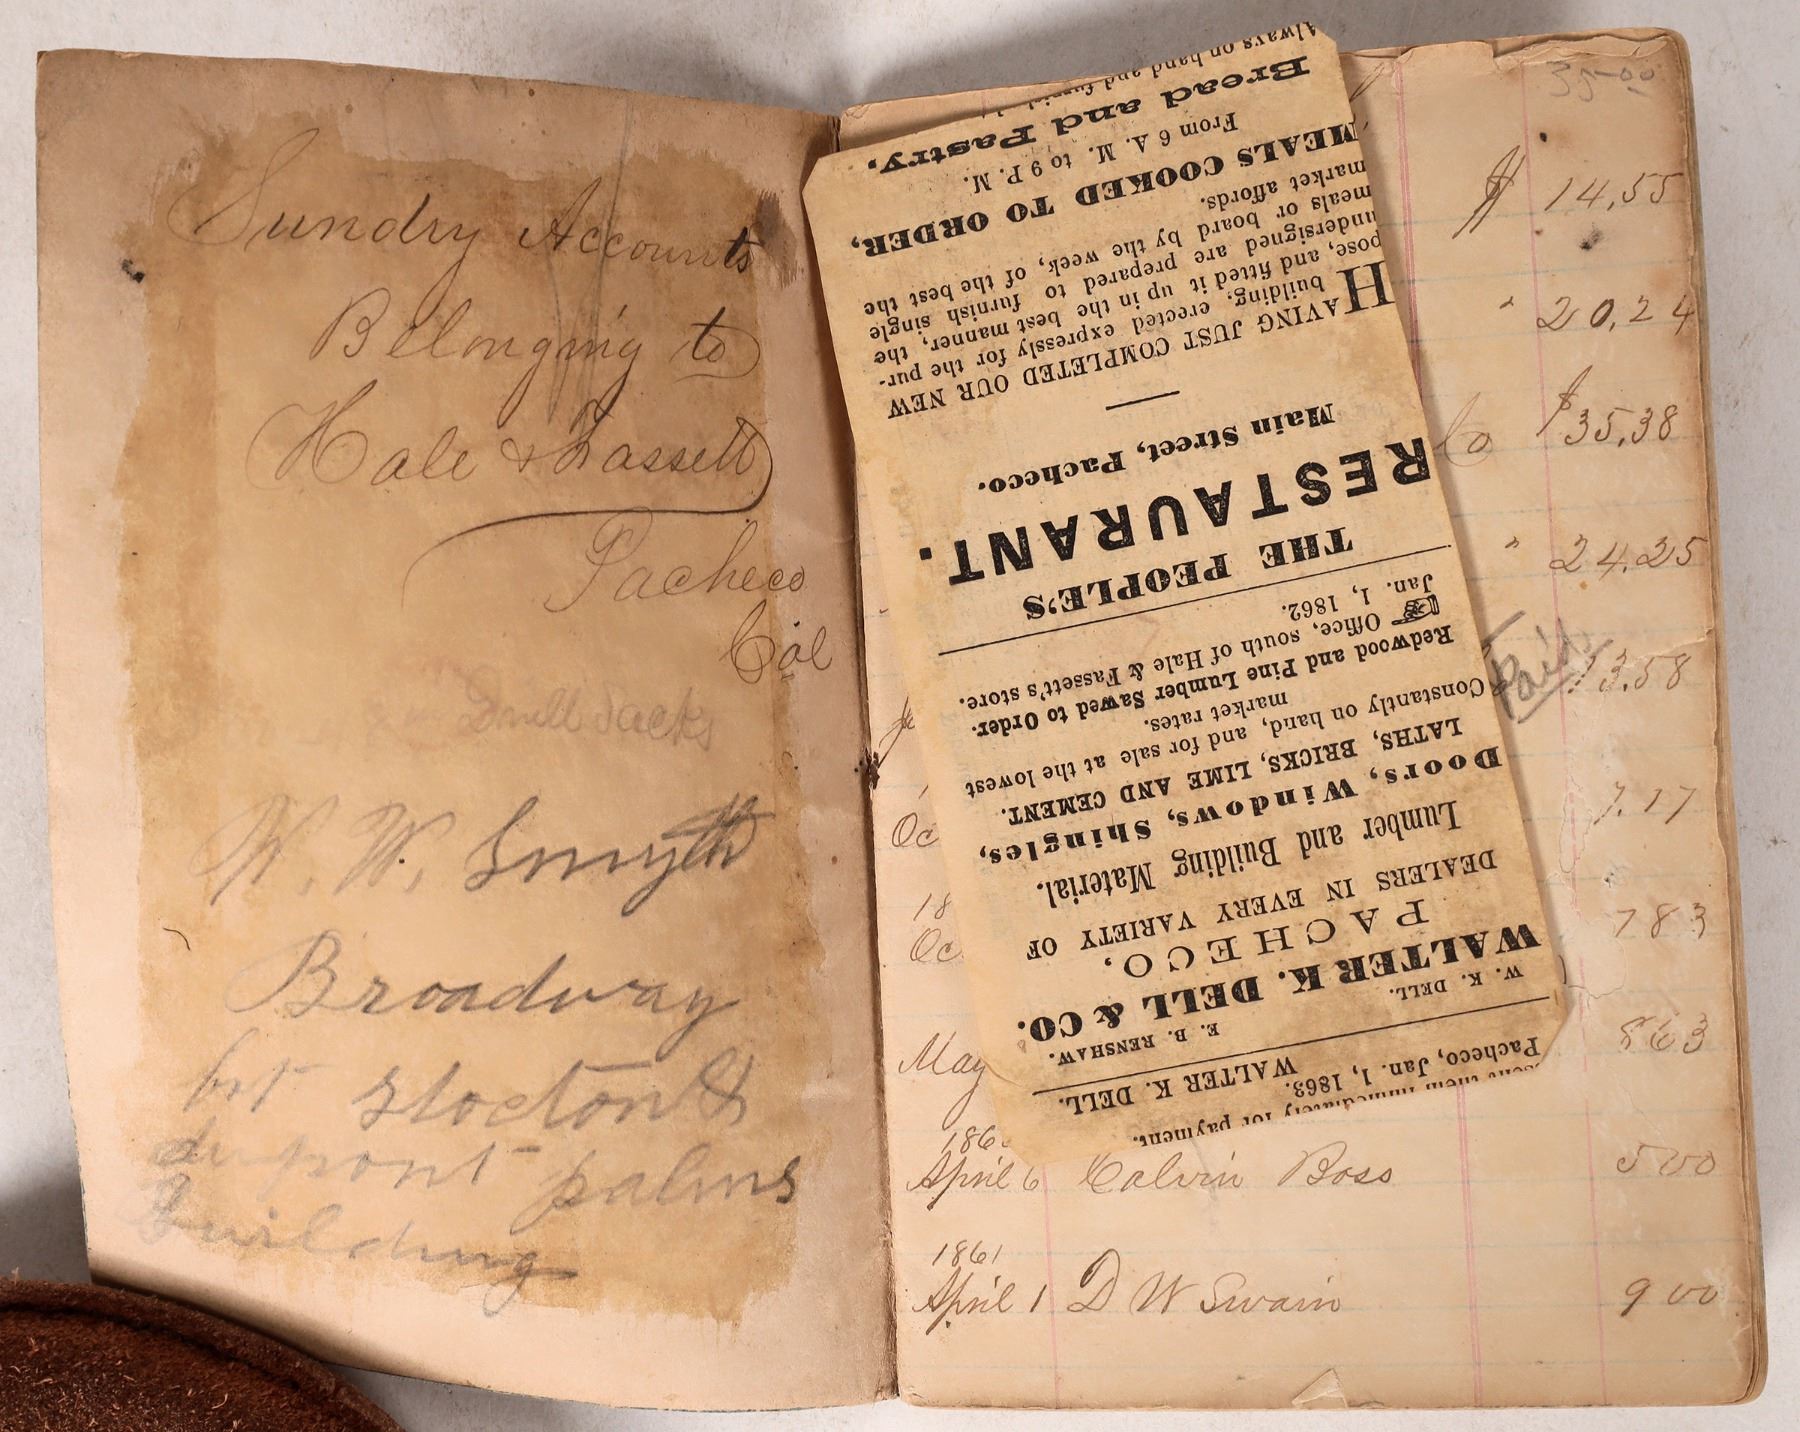 Sundry Accounts
Belonging to
Hale & Fassett
Pacheco
Cal
Drill Sacks
W. W. Smyth
Broadway
bet stocton &
dupont palms
Building
35-00
$ 14,55
" 20,24
Co $35,38
" 24.25
Paid 13.58
Oc 7.17
18
Oc 783
May 863
186
April 6 Calvin Boss 500
1861
April 1 D W Swain 900
sent them immediately for payment.
Pacheco, Jan. 1, 1863. WALTER K. DELL.
W. K. DELL. E. B. RENSHAW.
WALTER K. DELL & CO.
PACHECO,
DEALERS IN EVERY VARIETY OF
Lumber and Building Material.
Doors, Windows, Shingles,
LATHS, BRICKS, LIME AND CEMENT.
Constantly on hand, and for sale at the lowest
market rates.
Redwood and Pine Lumber Sawed to Order.
☞ Office, south of Hale & Fassett's store.
Jan. 1, 1862.
THE PEOPLE'S
RESTAURANT.
Main Street, Pacheco.
HAVING JUST COMPLETED OUR NEW
building, erected expressly for the pur-
pose, and fitted it up in the best manner, the
undersigned are prepared to furnish single
meals or board by the week, of the best the
market affords.
MEALS COOKED TO ORDER,
From 6 A. M. to 9 P. M.
Bread and Pastry.
Always on hand and